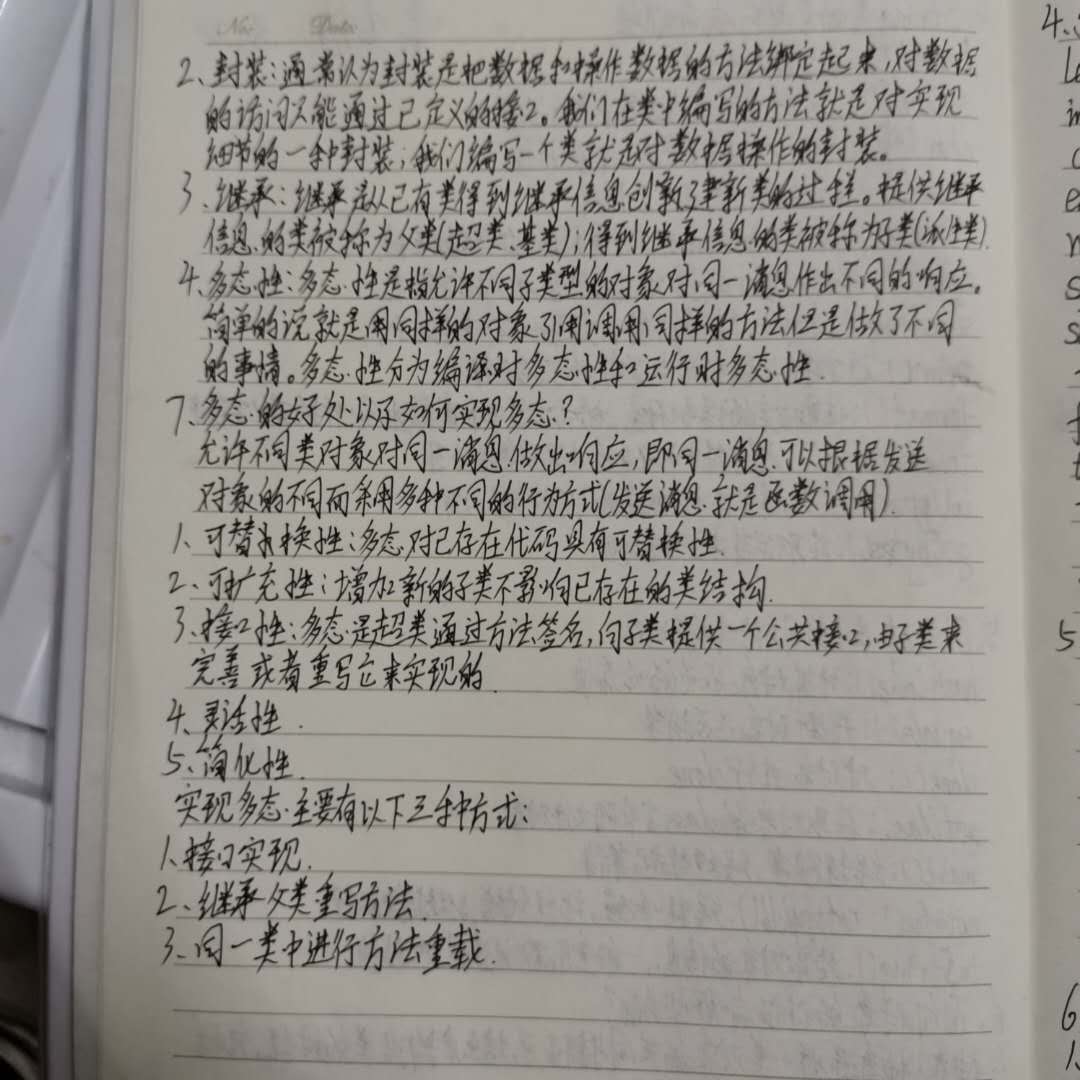 No. Date
2、封装：通常认为封装是把数据和操作数据的方法绑定起来，对数据
的访问只能通过已定义的接口。我们在类中编写的方法就是对实现
细节的一种封装；我们编写一个类就是对数据操作的封装。
3、继承：继承是从已有类得到继承信息创新建新类的过程。提供继承
信息的类被称为父类(超类、基类)；得到继承信息的类被称为子类(派生类).
4、多态性：多态性是指允许不同子类型的对象对同一消息作出不同的响应。
简单的说就是用同样的对象引用调用同样的方法但是做了不同
的事情。多态性分为编译时多态性和运行时多态性.
7、多态的好处以及如何实现多态？
允许不同类对象对同一消息做出响应，即同一消息可以根据发送
对象的不同而采用多种不同的行为方式(发送消息就是函数调用).
1、可替换性：多态对已存在代码具有可替换性.
2、可扩充性：增加新的子类不影响已存在的类结构.
3、接口性：多态是超类通过方法签名，向子类提供一个公共接口，由子类来
完善或者重写它来实现的.
4、灵活性.
5、简化性.
实现多态主要有以下三种方式：
1、接口实现.
2、继承父类重写方法.
3、同一类中进行方法重载.
4、
5
6